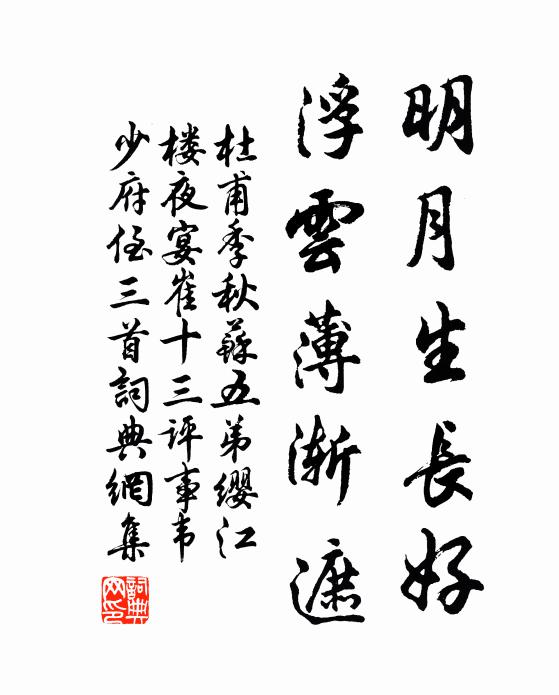 明月生長好
浮雲薄漸遮
杜甫季秋蘇五弟缨江
楼夜宴崔十三评事韦
少府侄三首詞典網集
詞典網印